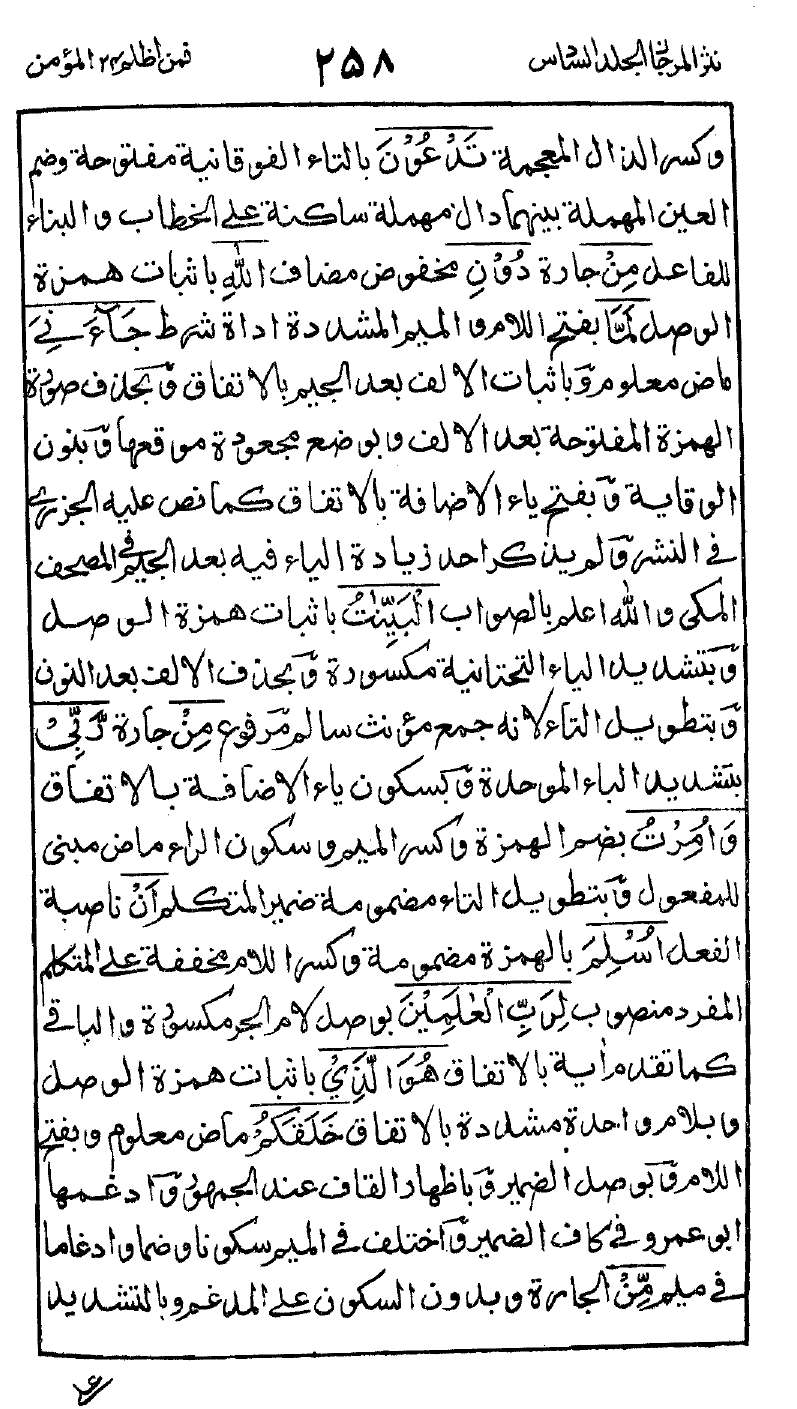 نثر المرجان الجلد السادس
٢٥٨
فمن اظلم ٢٤ المؤمن
وكسر الذال المعجمة تَدْعُوْنَ بالتاء الفوقانية مفتوحة وضم
العين المهملة بينهما دال مهملة ساكنة على الخطاب والبناء
للفاعل مِنْ جارة دُوْنِ مخفوض مضاف اللهِ باثبات همزة
الوصل لَمَّا بفتح اللام والميم المشددة اداة شرط جَآءَنِيَ
ماض معلوم وّباثبات الالف بعد الجيم بالاتفاق وّبحذف صورة
الهمزة المفتوحة بعد الالف وبوضع مجعودة موقعها وّبنون
الوقاية وّبفتح ياء الاضافة بالاتفاق كما نص عليه الجزري
في النشر وّلم يذكر احد زيادة الياء فيه بعد الجيم في المصحف
المكي والله اعلم بالصواب الْبَيِّنٰتُ باثبات همزة الوصل
وّبتشديد الياء التحتانية مكسورة وّبحذف الالف بعد النون
وّبتطويل التاء لانه جمع مؤنث سالم مّرفوع مِنْ جارة رَّبِّيْ
بتشديد الباء الموحدة وّبسكون ياء الاضافة بالاتفاق
وَاُمِرْتُ بضم الهمزة وكسر الميم وسكون الراء ماض مبني
للمفعول وّبتطويل التاء مضمومة ضمير المتكلم اَنْ ناصبة
الفعل اُسْلِمَ بالهمزة مضمومة وكسر اللام مخففة على المتكلم
المفرد منصوب لِرَبِّ الْعٰلَمِيْنَ بوصل لام الجر مكسورة والباقي
كما تقدم رأية بالاتفاق هُوَ الَّذِيْ باثبات همزة الوصل
وبلام واحدة مشددة بالاتفاق خَلَقَكُمْ ماض معلوم وبفتح
اللام وّبوصل الضمير وّباظهار القاف عند الجمهور وّادغمها
ابو عمرو في كاف الضمير وّاختلف في الميم سكونا وضما وادغاما
في ميم مِّنْ الجارة وبدون السكون على المدغم وبالتشديد